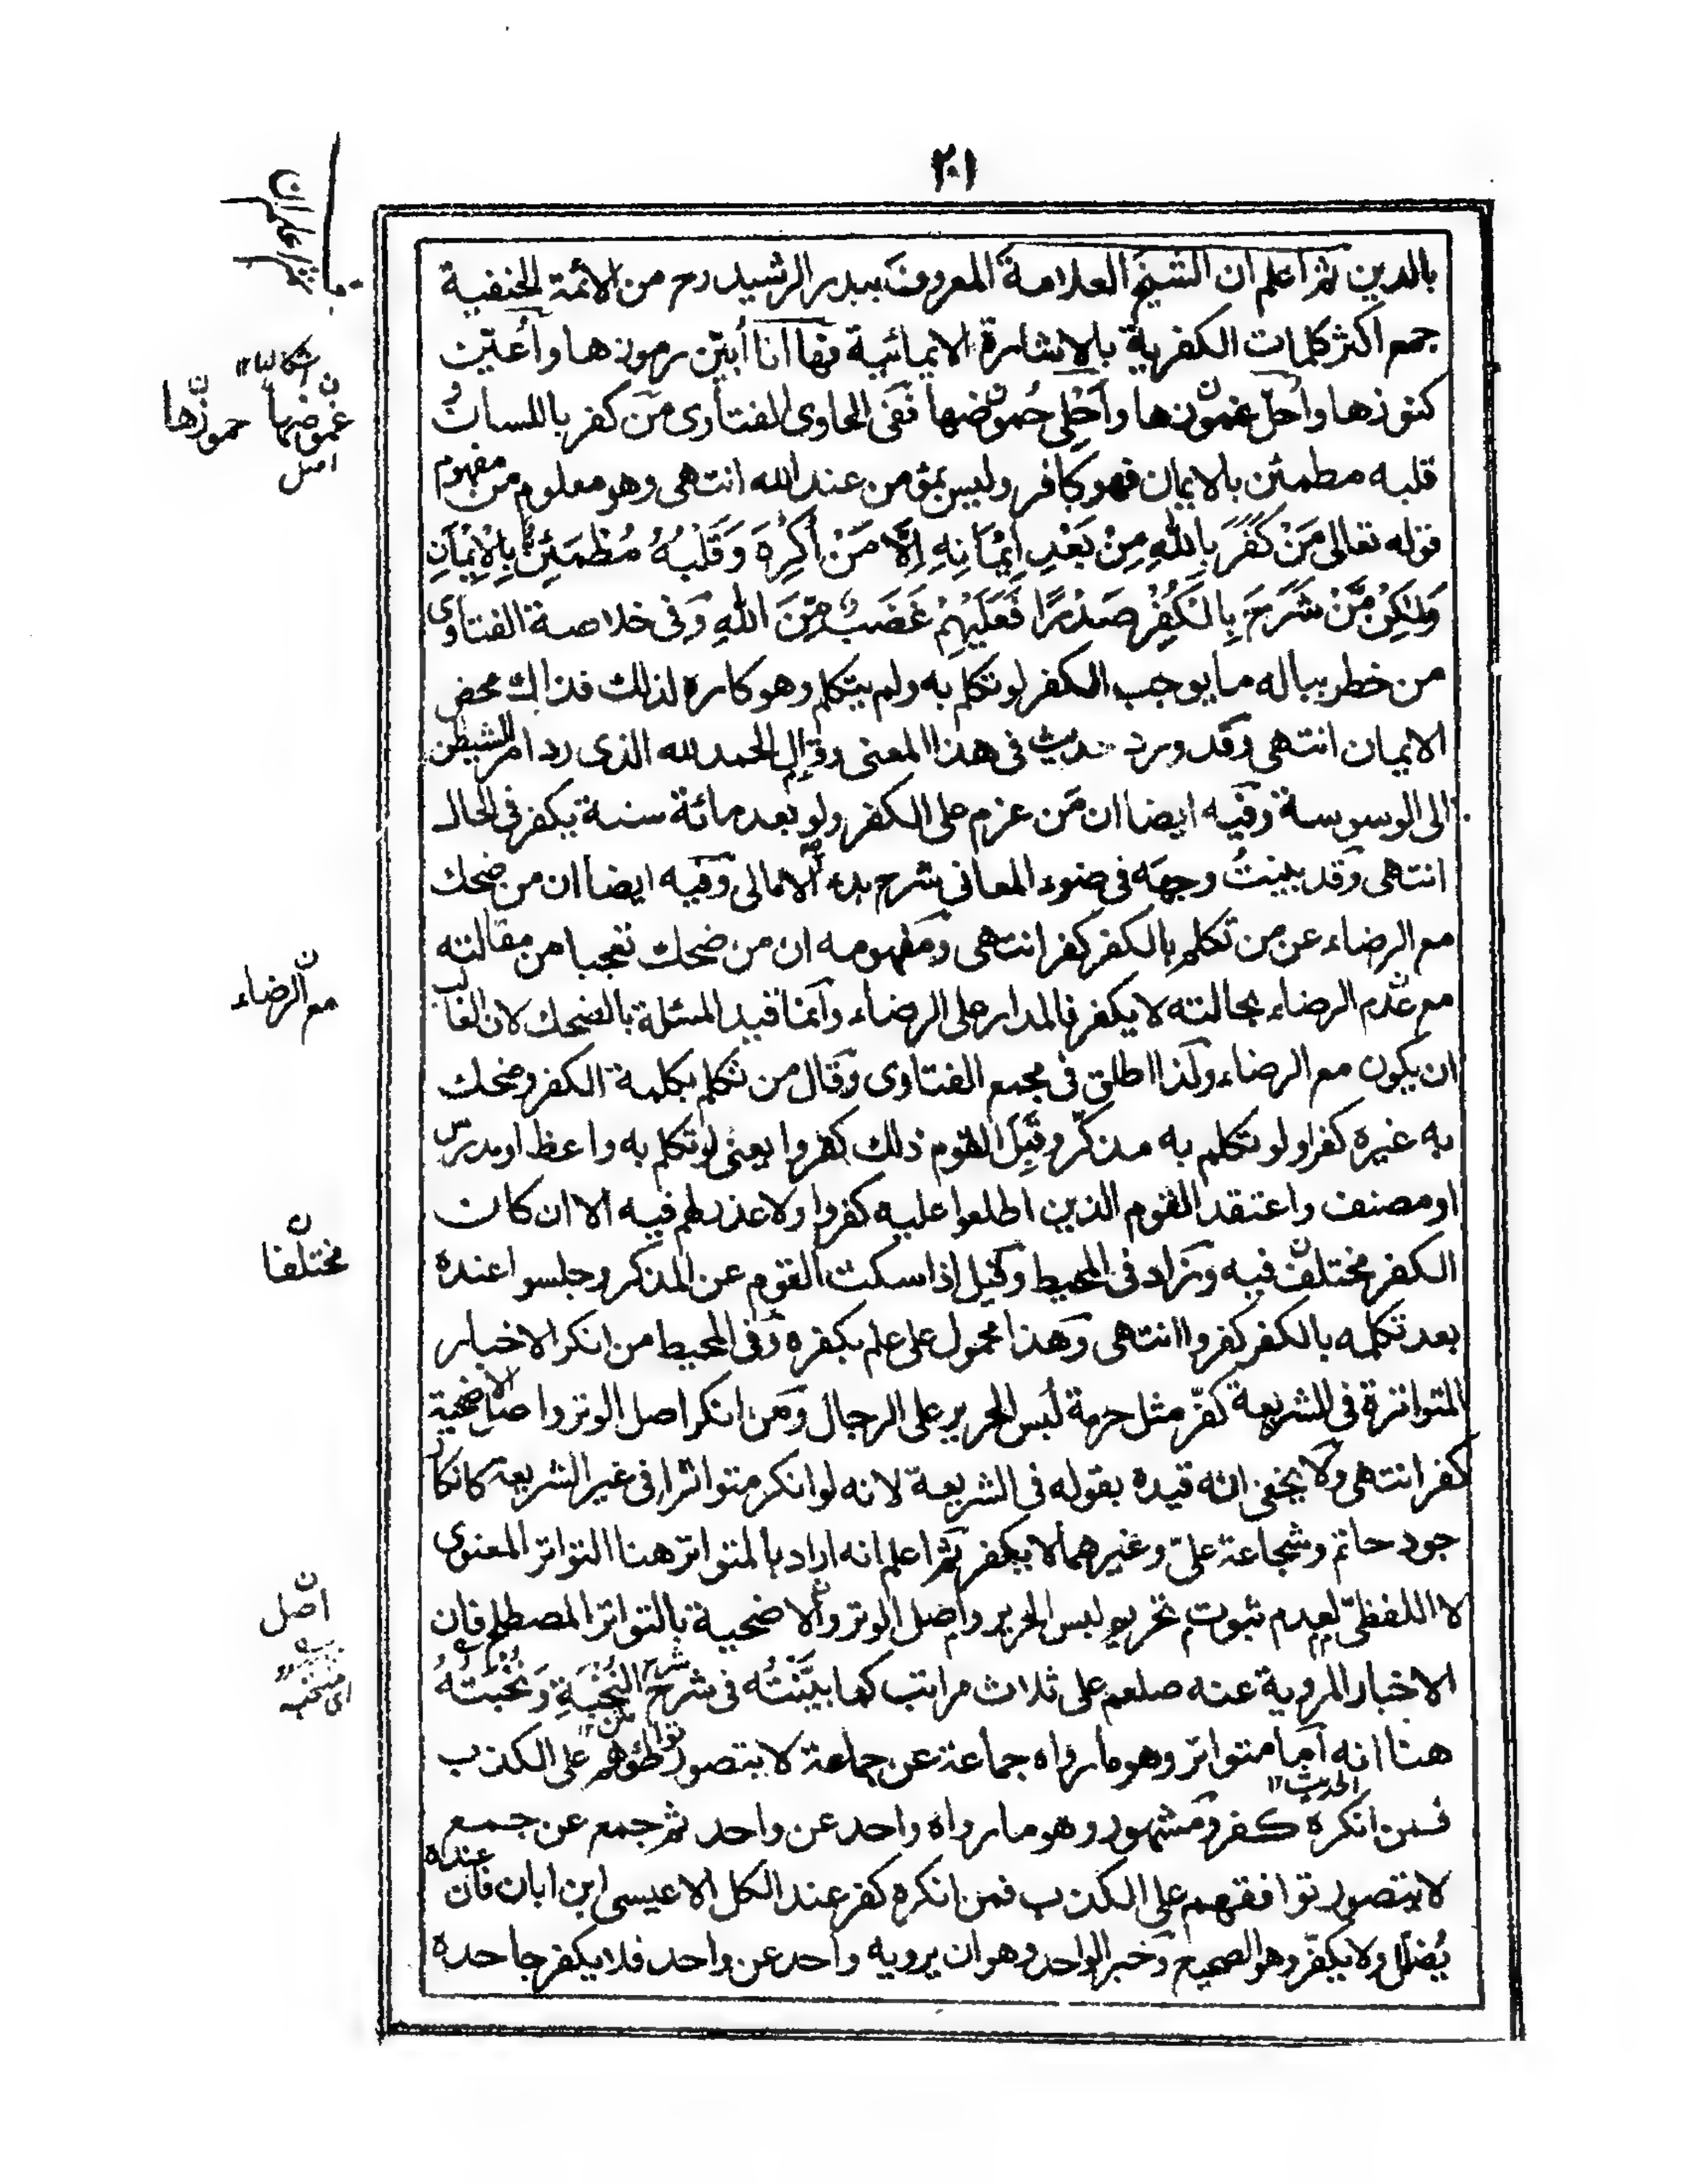 ٢٠١
بالدين ثم اعلم ان الشيخ العلامة المعروف ببدر الرشيد رح من الائمة الحنفية
جمع اكثر كلمات الكفرية بالاشارة الايمائية فها انا أبيّن رموزها وأعيّن
كنوزها واحلّ غموزها وأُجلي حموضها ففى الحاوى الفتاوى من كفر باللسان
قلبه مطمئن بالايمان فهو كافر وليس بمؤمن عند الله انتهى وهو معلوم من مفهوم
قوله تعالى مَنْ كَفَرَ بِاللهِ مِنْ بَعْدِ اِيْمَانِهِ اِلَّا مَنْ اُكْرِهَ وَقَلْبُهُ مُطْمَئِنٌّ بِالْاِيْمَانِ
وَلٰكِنْ مَّنْ شَرَحَ بِالْكُفْرِ صَدْرًا فَعَلَيْهِمْ غَضَبٌ مِّنَ اللهِ وفى خلاصة الفتاوى
من خطر بباله ما يوجب الكفر لو تكلم به ولم يتكلم وهو كاره لذلك فذاك محض
الايمان انتهى وقد ورد حديث فى هذا المعنى وقال الحمد لله الذى رد امر الشيطن
الى الوسوسة وفيه ايضا ان من عزم على الكفر ولو بعد مائة سنة يكفر فى الحال
انتهى وقد بينتُ وجهَه فى ضوء المعانى شرح بدء الامالى وفيه ايضا ان من ضحك
مع الرضاء عن من تكلم بالكفر كفر انتهى ومفهومه ان من ضحك تعجبا من مقالته
مع عدم الرضاء بحالته لا يكفر فالمدار على الرضاء وانما قيد المسئلة بالضحك لان الغالب
ان يكون مع الرضاء ولذا اطلق فى مجمع الفتاوى وقال من تكلم بكلمة الكفر وضحك
به غيره كفرا ولو تكلم به مذكّر وقَبِلَ القوم ذلك كفروا يعنى لو تكلم به واعظ او مدرس
او مصنف واعتقد القوم الذين اطلعوا عليه كفروا ولا عذر لهم فيه الا ان كان
الكفر مختلف فيه وزاد فى المحيط وقيل اذا سكت القوم عن المذكر وجلسوا عنده
بعد تكلمه بالكفر كفروا انتهى وهذا محمول على علم بكفره وفى المحيط من انكر الاخبار
المتواترة فى الشريعة كفّر مثل حرمة لُبس الحرير على الرجال ومن انكر اصل الوتر واصل الاضحية
كفر انتهى ولا يخفى انه قيده بقوله فى الشريعة لانه لو انكر متواترا فى غير الشريعة كانكار
جود حاتم وشجاعة علىّ وغيرهما لا يكفر ثم اعلم انه اراد بالمتواتر هنا التواتر المعنوى
لا اللفظىّ لعدم ثبوت تحريم لبس الحرير واصل الوتر والاضحية بالتواتر المصطلح فان
الاخبار المروية عنه صلعم على ثلاث مراتب كما بيّنتُه فى شرح شرح النُّخْبَةِ ونُخْبَتُهُ
هنا انه اما متواتر وهو ما رواه جماعة عن جماعة لا يتصور تواطؤهم على الكذب
فمن انكره كفر ومشهور وهو ما رواه واحد عن واحد ثم جمع عن جمع
الحديث ١٢
لا يتصور توافقهم على الكذب فمن انكره كفر عند الكل الا عيسى ابن ابان فان عنده
يُضلّل ولا يكفّر وهو الصحيح وخبر الواحد وهو ان يرويه واحد عن واحد فلا يكفر جاحده
ثم اعلم ان
غموضها حموزها
اصل
مع الرضاء
مختلفا
اصل
اى منتخبه